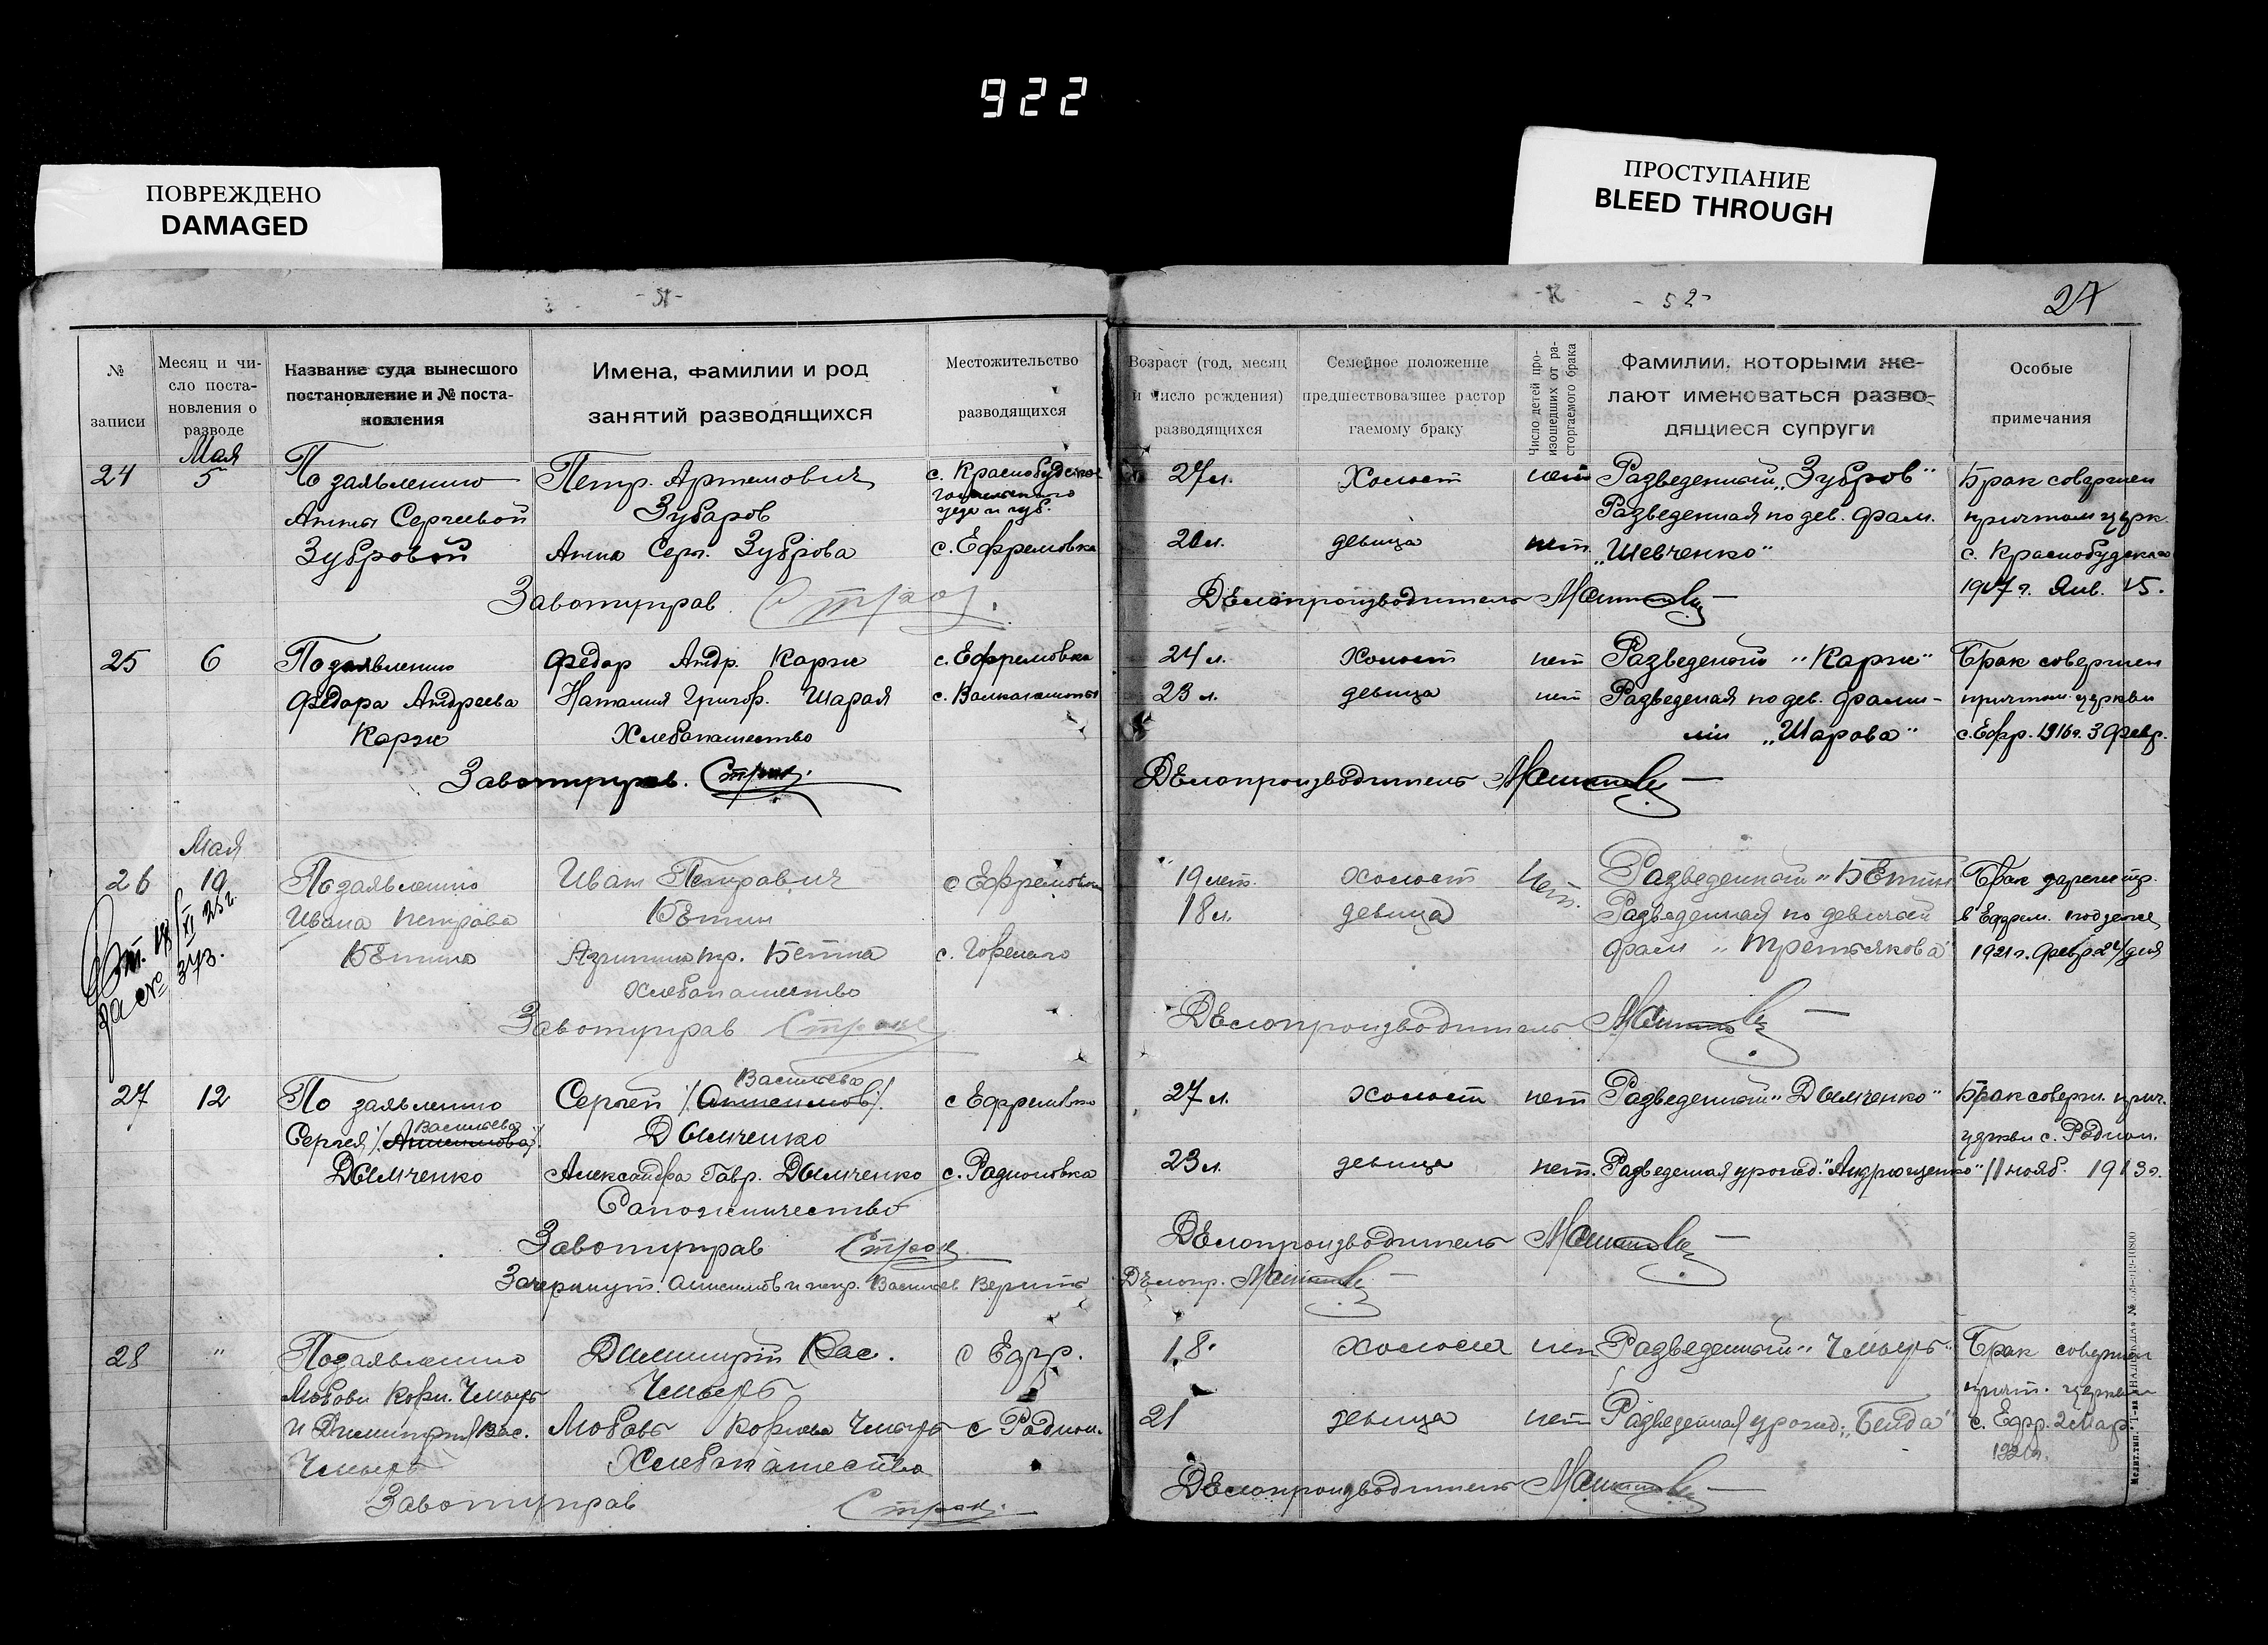 922
ПОВРЕЖДЕНО
DAMAGED
ПРОСТУПАНИЕ
BLEED THROUGH
- 51 -
- 52 -
27
№ записи
Месяц и чи-
сло поста-
новления о
разводе
Название суда вынесшого
постановление и № поста-
новления
Имена, фамилии и род
занятий разводящихся
Местожительство
разводящихся
Возраст (год, месяц
и число рождения)
разводящихся
Семейное положение
предшествовавшее растор
гаемому браку
Число детей про-
изошедших от ра-
сторгаемого брака
Фамилии, которыми же-
лают именоваться разво-
дящиеся супруги
Особые
примечания
24
Мая
5
По заявлению
Анны Сергеевой
Зубровой
Петр. Артемович
Зубаров
Анна Серг. Зуброва
с. Краснобудско
уезда и губ.
с. Ефремовка
27 л.
20 л.
Холост
девица
нет
нет.
Разведенный „Зубров"
Разведенная по дев. фам.
„Шевченко"
Брак совершен
причтом церк.
с. Краснобудска
1917 г. Янв. 15.
Завотуправ.
Делопроизводитель
25
6
По заявлению
Федора Андреева
Корж
Федор Андр. Корж
Наталия Григор. Шарая
Хлебопашество
с. Ефремовка
24 л.
23 л.
холост
девица
нет
нет
Разведеный „Корж"
Разведеная по дев. фами-
лии „Шарова"
Брак совершен
причтом церкви
с. Ефр. 1916 г. 3 Февр.
Завотуправ.
Делопроизводитель
26
Мая
19
По заявлению
Ивана Петрова
Бѣтина
Иван Петрович
Бѣтин
пр. Бетина
Хлебопашество
с Ефремовка
с. Горелого
19 лет.
18 л.
холост
девица
Нет.
Разведенный „Бѣтин
Разведенная по девичьей
фам „Третьякова"
Брак зарегистр.
в Ефрем. подзаге
1921 г. Февр 24 дня
373.
Завотуправ
Делопроизводитель
27
12
По заявлению
Васильева
Сергея /Анисимова/.
Дымченко
Васильев
Сергей /Анисимов/.
Дымченко
Александра Гавр. Дымченко
Сапожничество
с Ефремовка
с. Радионовка
27 л.
23 л.
холост
девица
нет
нет.
Разведенный „Дымченко"
Разведеная урожд. „Андрющенко"
Брак соверш. прич.
церкви с. Радион.
11 нояб. 1913 г.
Завотуправ
Делопроизводитель
Зачеркнут. Анисимов и испр. Васильев Верить
Делопр.
28
"
По заявлению
Любови Корн. Чмырь
и Димитрия Вас.
Чмырь
Димитрий Вас.
Чмырь
Любовь Корнеева Чмырь
Хлебопашество
с Ефр.
с Радион.
18.
21
холост
девица
нет
нет
Разведенный „Чмырь"
Разведенная урожд. „Бейда"
Брак совершен
причт. церкви
с. Ефр. 2 Мар.
Завотуправ
Делопроизводитель